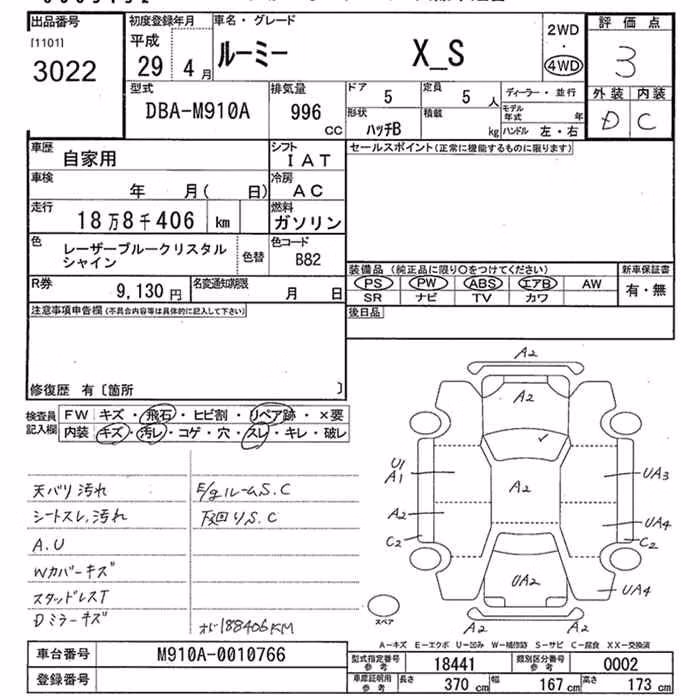 出品番号
[1101]
3022
初度登録年月
平成
29 4月
車名・グレード
ルーミー X_S
2WD
・
4WD
評価点
3
外装 内装
D C
型式
DBA-M910A
排気量
996
CC
ドア
5
定員
5 人
形状
ハッチB
積載
kg
ディーラー・並行
モデル年式 年
ハンドル 左・右
車歴
自家用
シフト
IAT
車検
年 月( 日)
冷房
AC
走行
18万8千406 km
燃料
ガソリン
色
レーザーブルークリスタル
シャイン
色替
色コード
B82
R券
9,130 円
名変通知期限
月 日
セールスポイント(正常に機能するものに限ります)
装備品(純正品に限り○をつけてください)
新車保証書
PS PW ABS エアB AW
SR ナビ TV カワ
有・無
後日品
注意事項申告欄(不具合内容等は具体的に記入して下さい)
修復歴 有〔箇所 〕
検査員
記入欄
FW キズ・飛石・ヒビ割・リペア跡・×要
内装 キズ・汚レ・コゲ・穴・スレ・キレ・破レ
天バリ汚れ
シートスレ,汚れ
A.U
Wカバーキズ
スタッドレスT
Dミラーキズ
E/gルームS.C
下回りS.C
188406KM
A2
A2
U1
A1
A2
A2
C2
UA3
UA4
C2
UA2
UA4
A2 A2
スペア
A-キズ E-エクボ U-凹み W-補修跡 S-サビ C-腐食 XX-交換済
車台番号
M910A-0010766
登録番号
型式指定番号
参考
18441
類別区分番号
参考
0002
車庫証明用
参考
長さ
370 cm
幅
167 cm
高さ
173 cm